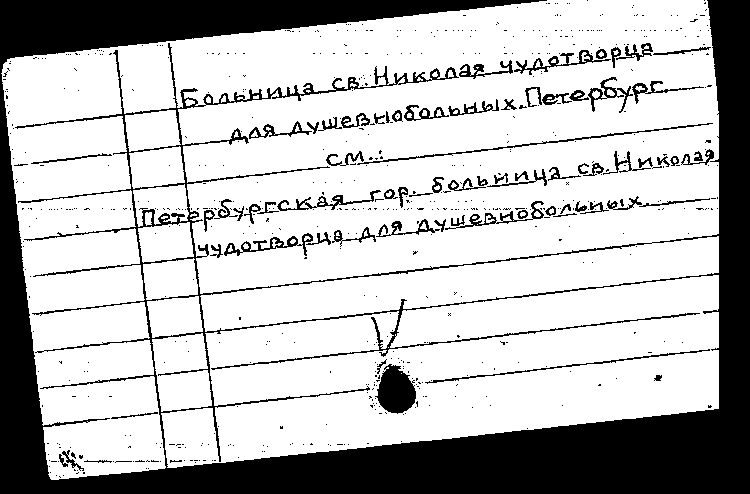 Больница св. Николая чудотворца
для душевнобольных. Петербург.
см.:
Петербургская гор. больница св. Николая
чудотворца для душевнобольных.